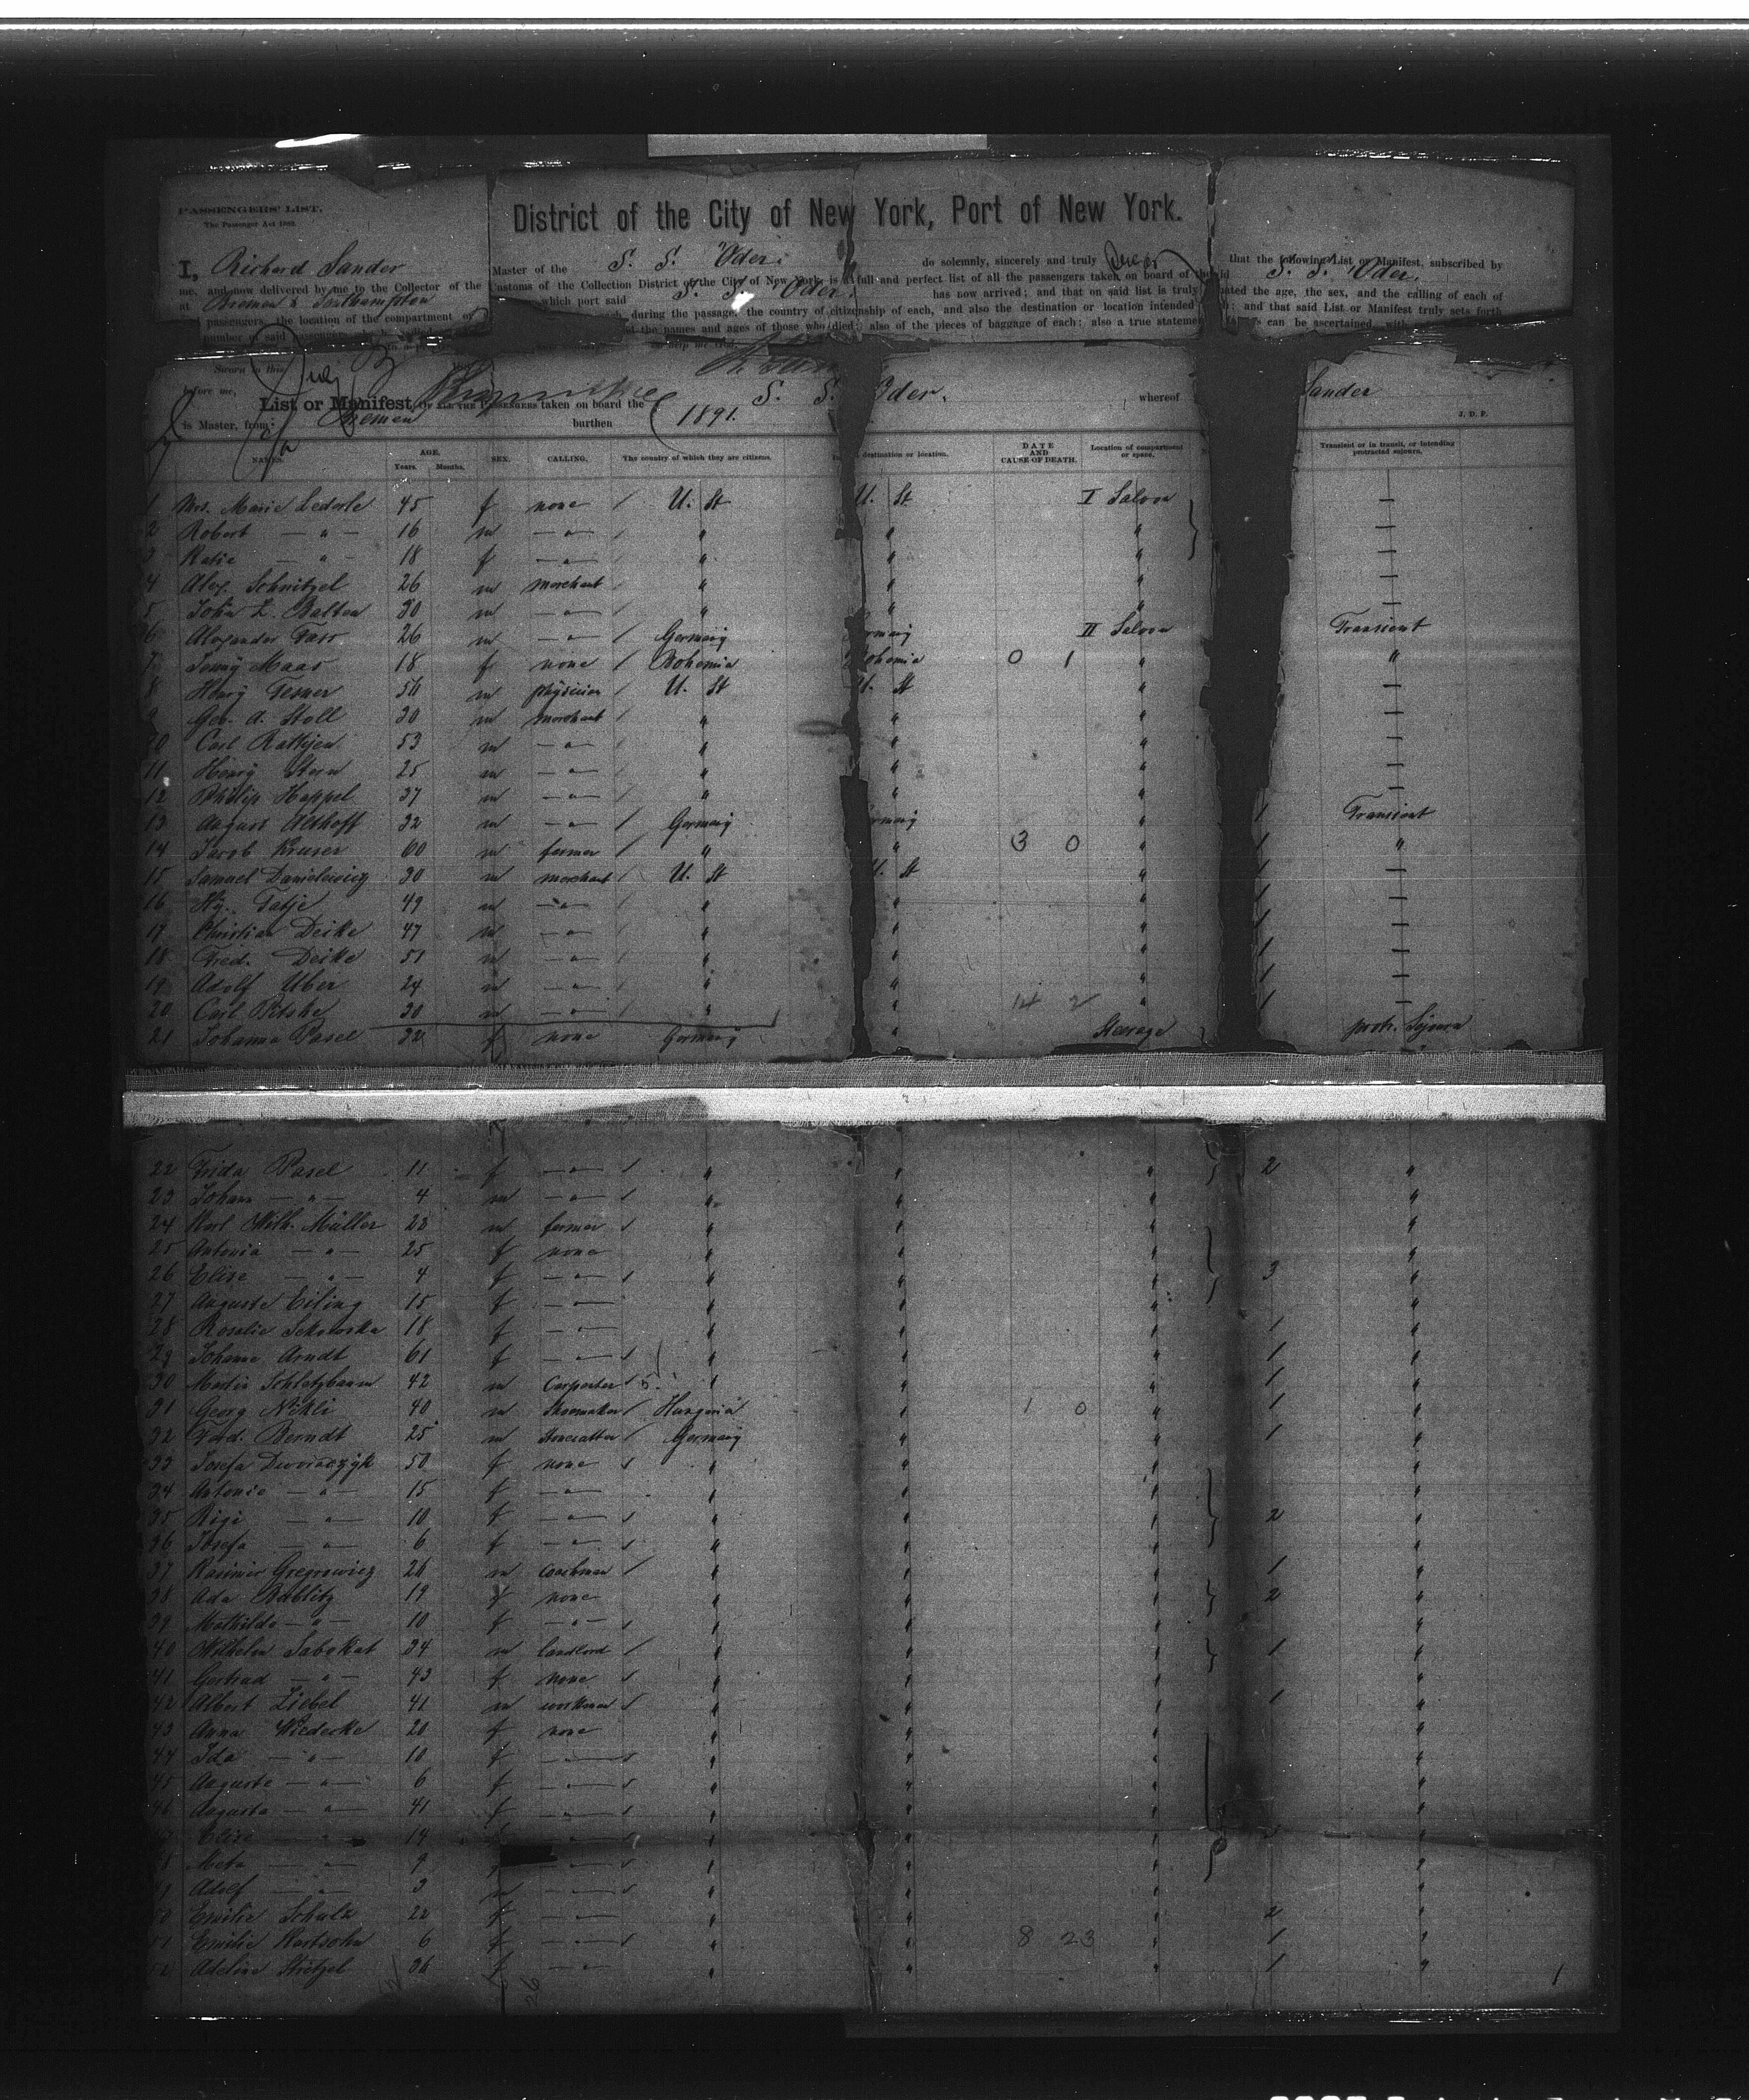 PASSENGERS' LIST.
The Passenger Act 1882.
District of the City of New York, Port of New York.
I, Richard Sander Master of the S. S. "Oder" do solemnly, sincerely and truly swear that the following List or Manifest, subscribed by
me, and now delivered by me to the Collector of the Customs of the Collection District of the City of New York, is a full and perfect list of all the passengers taken on board of the said S. S. "Oder"
at Bremen & Southampton which port said S. S. "Oder" has now arrived; and that on said list is truly stated the age, the sex, and the calling of each of
passengers, the location of the compartment of each, during the passage, the country of citizenship of each, and also the destination or location intended; and that said List or Manifest truly sets forth
number of said passengers the names and ages of those who died; also of the pieces of baggage of each; also a true statement can be ascertained
Sworn to this
before me,
List or Manifest, OF ALL THE PASSENGERS taken on board the S. S. Oder, whereof Sander
is Master, from Bremen burthen 1891.
J. D. P.
NAMES. AGE. Years. Months. SEX. CALLING. The country of which they are citizens. destination or location. DATE AND CAUSE OF DEATH. Location of compartment or space. Transient or in transit, or intending protracted sojourn.
1 Mrs. Marie Lederle 45 f none / U. St U. St I Saloon —
2 Robert — " — 16 m — " — / " " " —
3 Katie — " — 18 f — " — / " " " —
4 Alex. Schnitzel 26 m merchant / " " " —
5 John L. Balton 30 m — " — / " " " —
6 Alexander Farr 26 m — " — / Germany Germany II Saloon Transient
7 Jenny Maas 18 f none / Bohemia Bohemia 0 1 " "
8 Henry Tesner 54 m physician / U. St U. St " —
9 Geo. A. Stoll 30 m merchant / " " " —
10 Carl Rathjen 53 m — " — / " " " —
11 Henry Stern 25 m — " — / " " " —
12 Philip Happel 37 m — " — / " " " —
13 August Althoff 32 m — " — / Germany Germany " 1 Transient
14 Jacob Kruser 60 m farmer / " " 3 0 " 1 "
15 Samuel Danielewicz 30 m merchant / U. St U. St " 1 —
16 Hy. Tatje 49 m — " — / " " " 1 —
17 Christian Deike 47 m — " — / " " " 1 —
18 Fred. Deike 51 m — " — / " " " 1 —
19 Adolf Uber 24 m — " — / " " " 1 —
20 Carl 30 m — " — / " " 14 2 " 1 —
21 Johanna Pasel 32 f none Germany " Steerage protr. Sojourn
22 Frida Pasel 11 f — " — / " " " 2 "
23 Johann — " — 4 m — " — / " " " "
24 Karl Wilh. Müller 28 m farmer / " " " "
25 Antonia — " — 25 f none " " " "
26 Elise — " — 4 f — " — / " " " 3 "
27 Auguste Eiling 15 f — " — " " " "
28 Rosalie 18 f — " — " " " 1 "
29 Johanna Arndt 61 f — " — / " " " 1 "
30 Martin Schlatzbaum 42 m Carpenter / " " " 1 "
31 Georg Nikli 40 m Shoemaker / Hungaria " 1 0 " 1 "
32 Ferd. Berndt 25 m Stonecutter / Germany " " 1 "
33 Josefa Dworaczyk 50 f none / " " " "
34 Antonie — " — 15 f — " — " " " "
35 Rigi — " — 10 f — " — / " " " 2 "
36 Josefa — " — 6 f — " — / " " " "
37 Kasimir Gregrowicz 26 m coachman / " " " 1 "
38 Ada Rablitz 19 f none " " " 2 "
39 Mathilde — " — 10 f — " — / " " " "
40 Wilhelm Sabokat 34 m landlord / " " " 1 "
41 Gertrud — " — 43 f none / " " " "
42 Albert Ziebel 41 m workman / " " " 1 "
43 Anna Wiedecke 20 f none " " " "
44 Ida — " — 10 f — " — / " " " "
45 Auguste — " — 6 f — " — / " " " "
46 Augusta — " — 41 f — " — / " " " "
Elise — " — 14 — " — / " " " "
Meta — " — 9 — " — / " " " "
Adolf — " — 3 m — " — / " " " "
50 Emilie Schulz 22 f — " — " " " 2 "
51 Emilie Hartsohn 6 f — " — / " " 8 23 " 1 "
Adeline 36 f — " — " " " 1 "